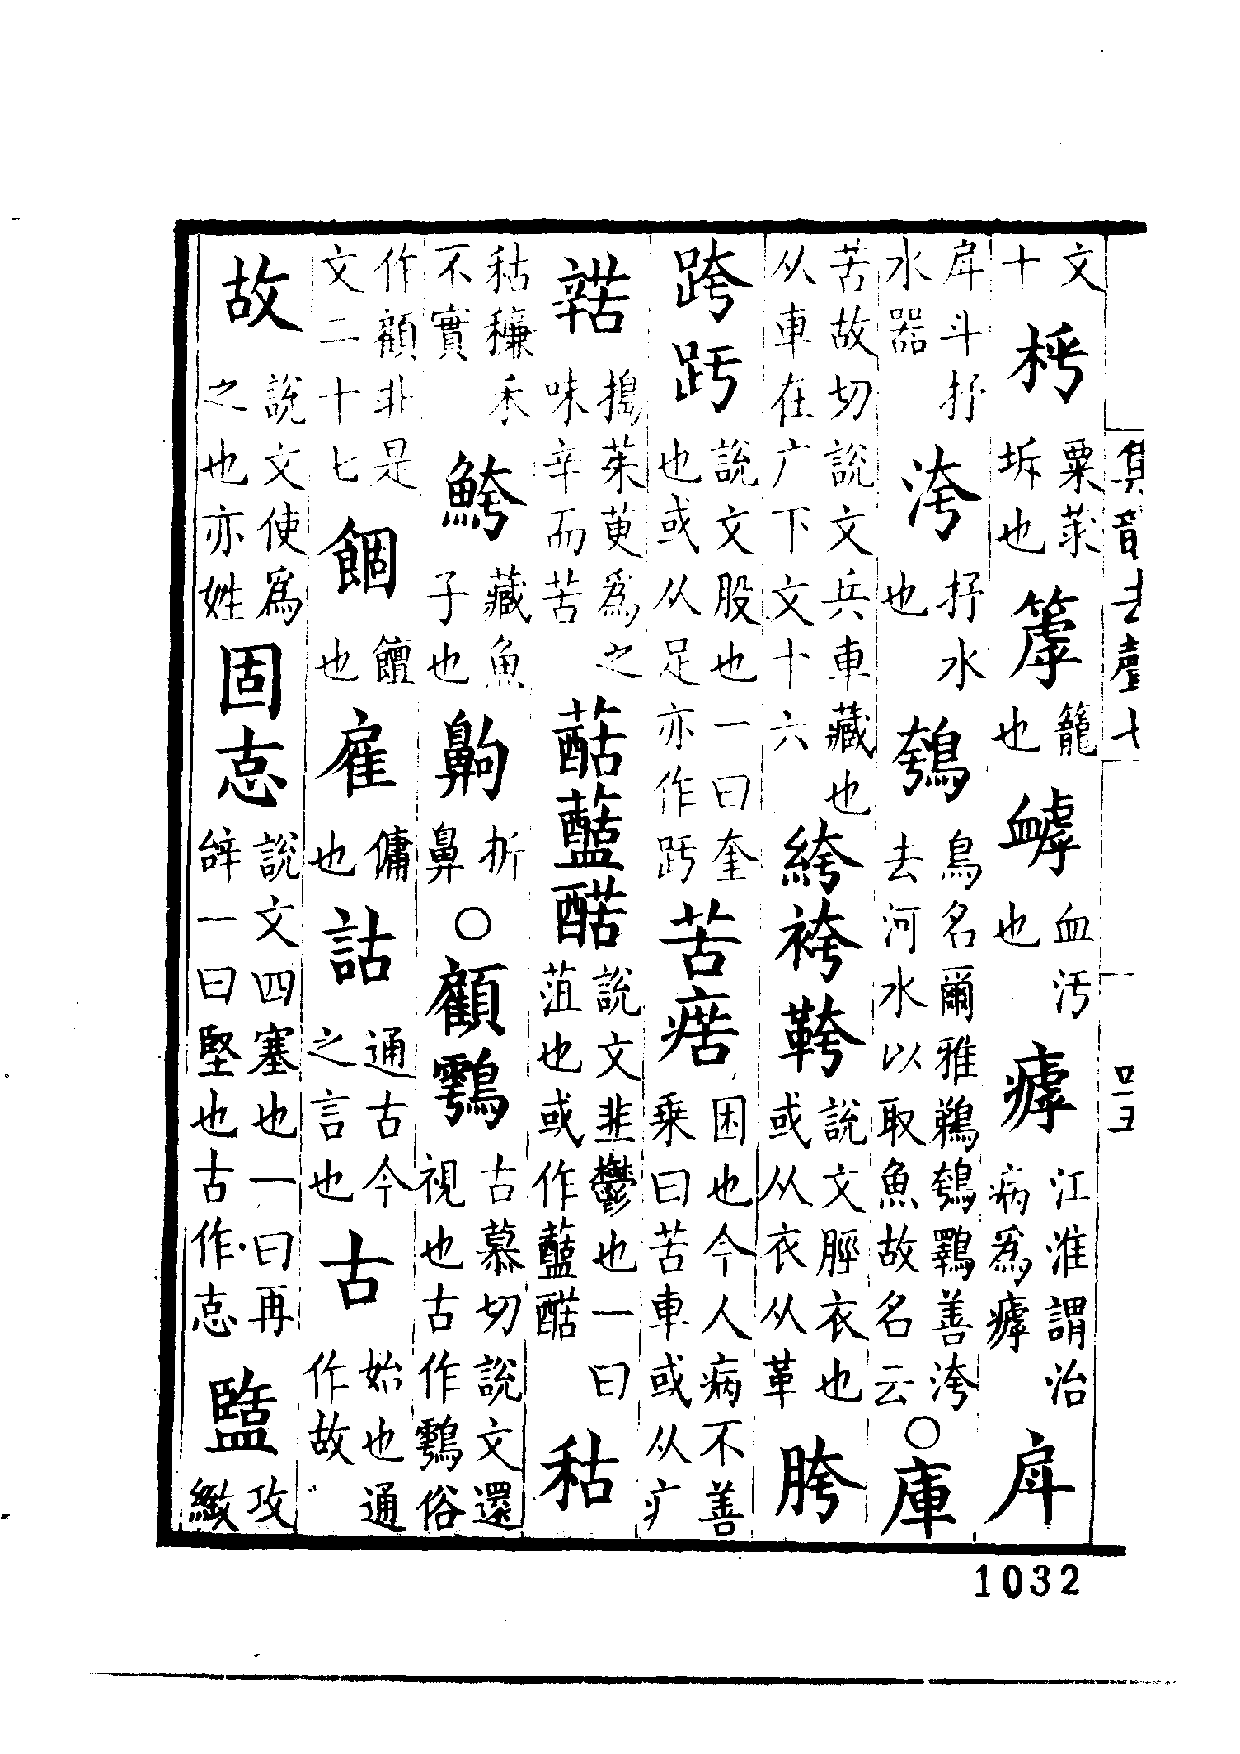 文十 㭔 粟莍坼也 䉉 籠也 𧗕 血汚也 㾧 江淮謂治病爲㾧 戽
戽斗抒水器 洿 抒水也 鴮 鳥名爾雅鵜鴮鸅善洿去河水以取魚故名云 ○ 庫
苦故切說文兵車藏也从車在广下文十六 絝 袴 鞟 說文脛衣也或从衣从革 胯
跨 䟕 說文股也一曰奎也或从足亦作䟕 苦 㾇 困也今人病不善乘曰苦車或从疒
搗茱萸爲之味辛而苦 說文韭鬱也一曰菹也或作 秙
秙穅禾不實 鮬 藏魚子也 折鼻 ○ 顧 古慕切說文還視也古作俗
作頋非是文二十七 錮 饘也 雇 傭也 詁 通古今之言也 古 始也通作故
故 說文使爲之也亦姓 固 怘 說文四塞也一曰再辝一曰堅也古作怘 盬 攻緻
集韻去聲七 四五
1032